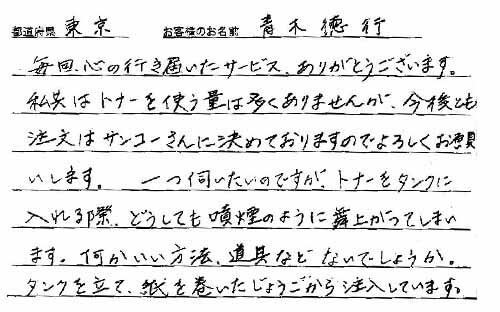 都道府県 東京 お客様のお名前 青木徳行
毎回、心の行き届いたサービス、ありがとうございます。
私共はトナーを使う量は多くありませんが、今後とも
注文はサンコーさんに決めておりますのでよろしくお願
いします。 一つ伺いたいのですが、トナーをタンクに
入れる際、どうしても噴煙のように舞上がってしまい
ます。何かいい方法、道具など ないでしょうか。
タンクを立て、紙を巻いたじょうごから注入しています。